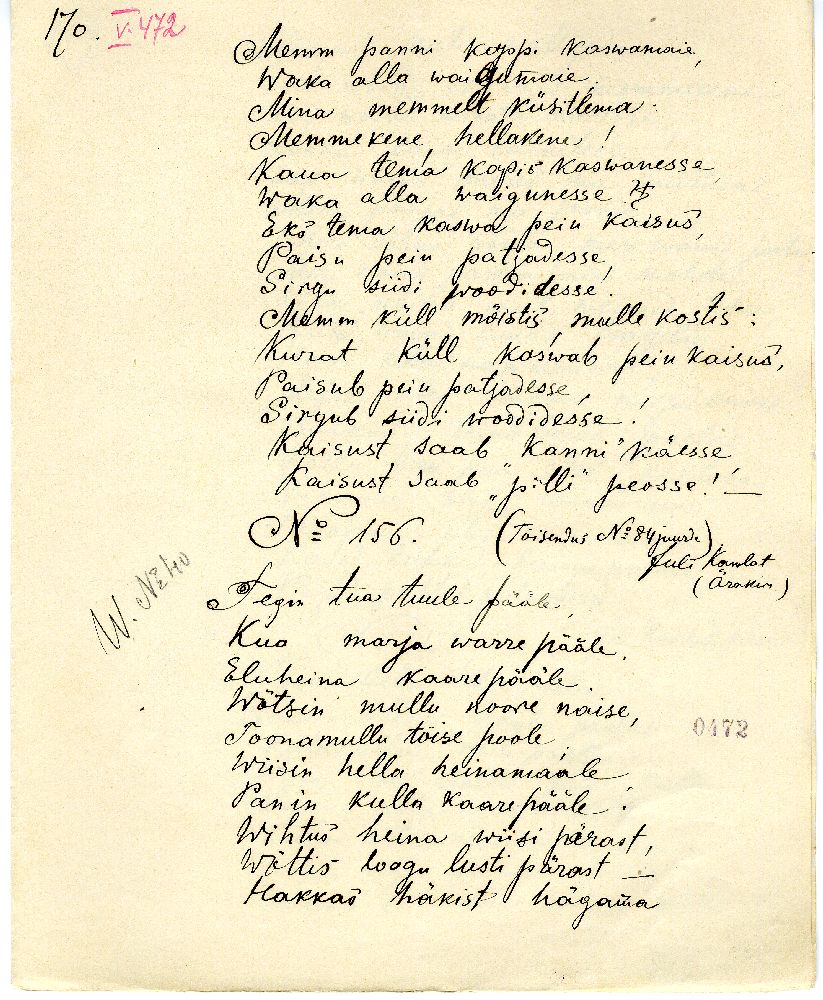 170. V. 472
Memm panni koppi kaswamaie,
Waka alla waigumaie.
Mina memmelt küsitlema:
Memmekene, hellakene!
Kaua tema kopis kaswanesse,
Waka alla waigunesse?
Eks tema kaswa pein kaisus,
Paisu pein patjadesse,
Sirgu siidi woodidesse.
Memm küll mõistis, mulle kostis:
Kurat küll kaswab pein kaisus,
Paisub pein patjadesse,
Sirgub siidi woodidesse!
Kaisust saab "Kanni" käesse
Kaisust saab "pilli" peosse! —
No 156. (Toisendus No 84 juurde)
Juli Kamlat
W. No 40
Tegin tua tuule pääle,
Kua marja warre pääle,
Eluheina kaare pääle.
Wõtsin mullu noore naise,
Toonamullu tõise poole
0472
Wiisin hella heinamaale
Panin kulla kaare pääle.
Wihtus heina wiisi pärast,
Wõttis loogu lusti pärast —
Hakkas häkist hägama